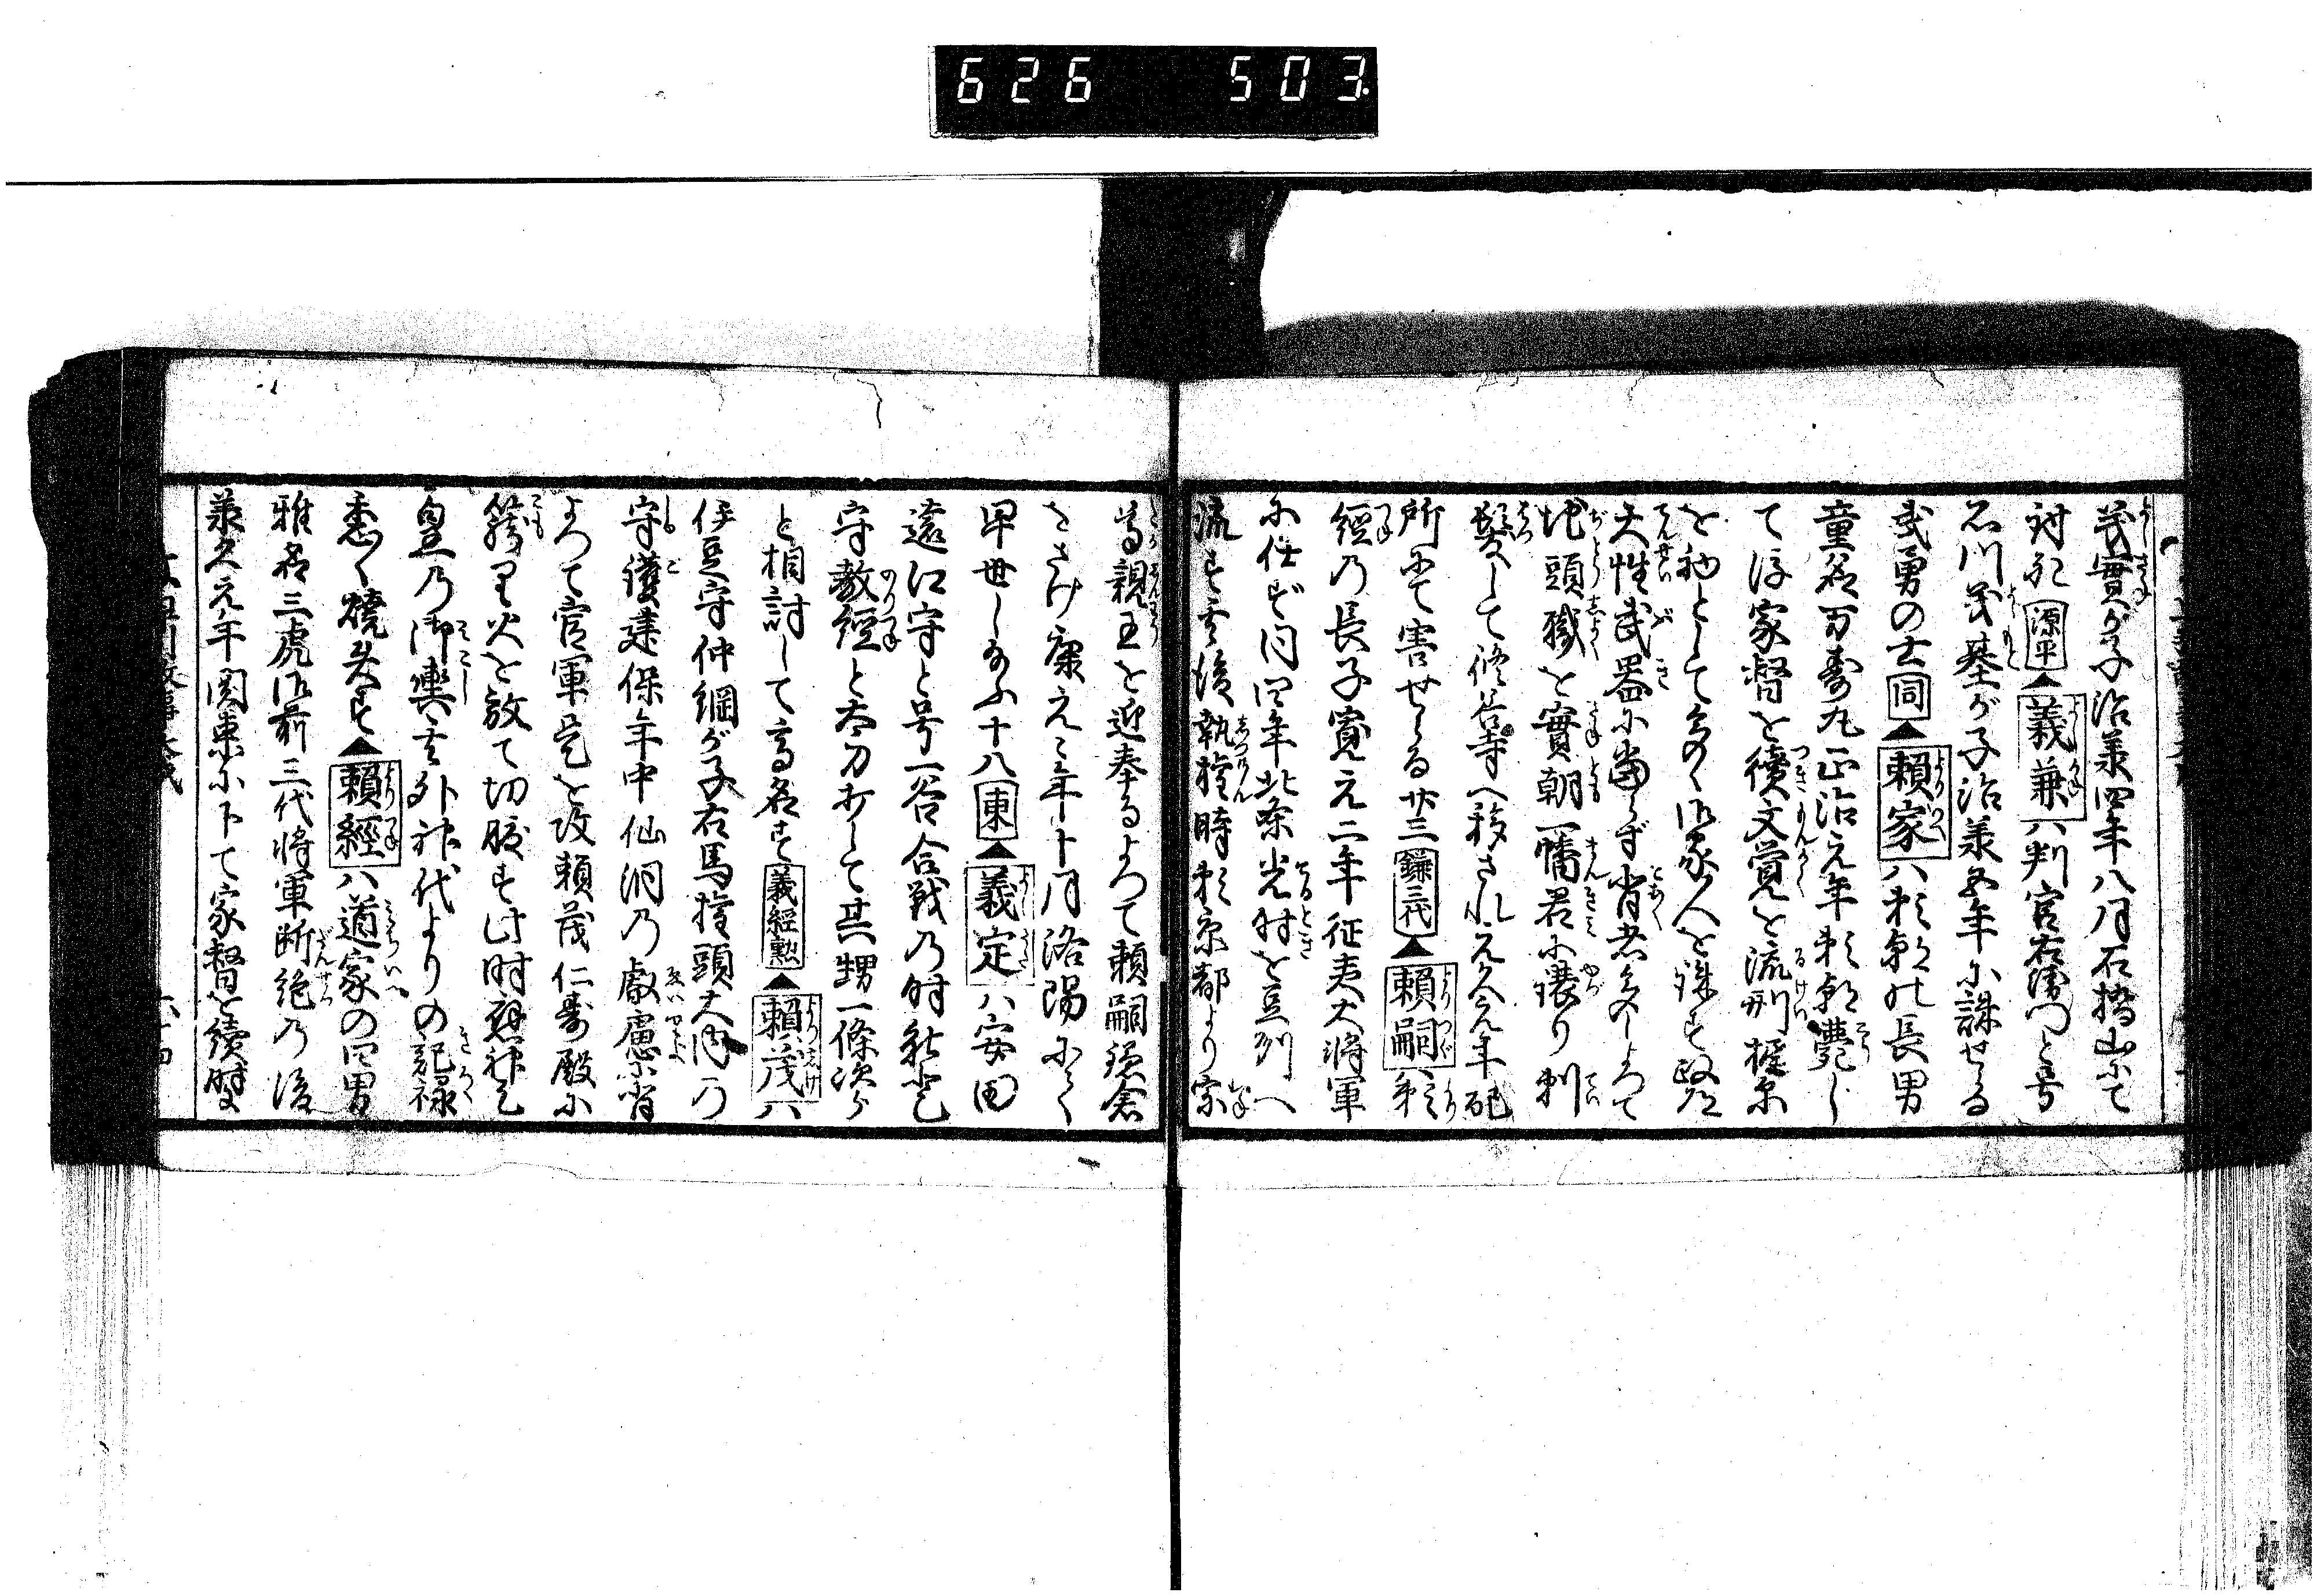 626 503
義實が子治承四年八月石橋山にて
討死源平▲義兼ハ判官右衛門と号
石川義基が子治承五年に誅せらる
武勇の士同▲頼家ハ頼朝の長男
童名万壽丸正治元年頼朝薨じ
て後家督を續文覚を流刑梶原
を初として多く御家人を誅す政道
天性武器に當らず背者多しよつて
地頭職を實朝一幡君に讓り剃
髪して修善寺へ移され元久元年配
所にて害せらる廿三鎌三代▲頼嗣ハ頼
經の長子寛元二年征夷大将軍
に任ず同四年北条光時を豆州へ
流す其後執権時頼京都より宗
尊親王を迎奉るよつて頼嗣鎌倉
をさけ康元々年十月洛陽にて
早世し給ふ十八東▲義定ハ安田
遠江守と号一谷合戦の時能登
守教經と太刀打して其甥一條次郎
と相討して高名す義經勲▲頼茂ハ
伊豆守仲綱が子右馬権頭大内の
守護建保年中仙洞の叡慮に背
よつて官軍是を攻頼茂仁壽殿に
籠り火を放て切腹す此時應神天
皇の御輿其外神代よりの記禄
悉く焼失す▲頼經ハ道家の四男
雅名三虎御前三代将軍断絶の後
承久元年関東に下て家督を續時